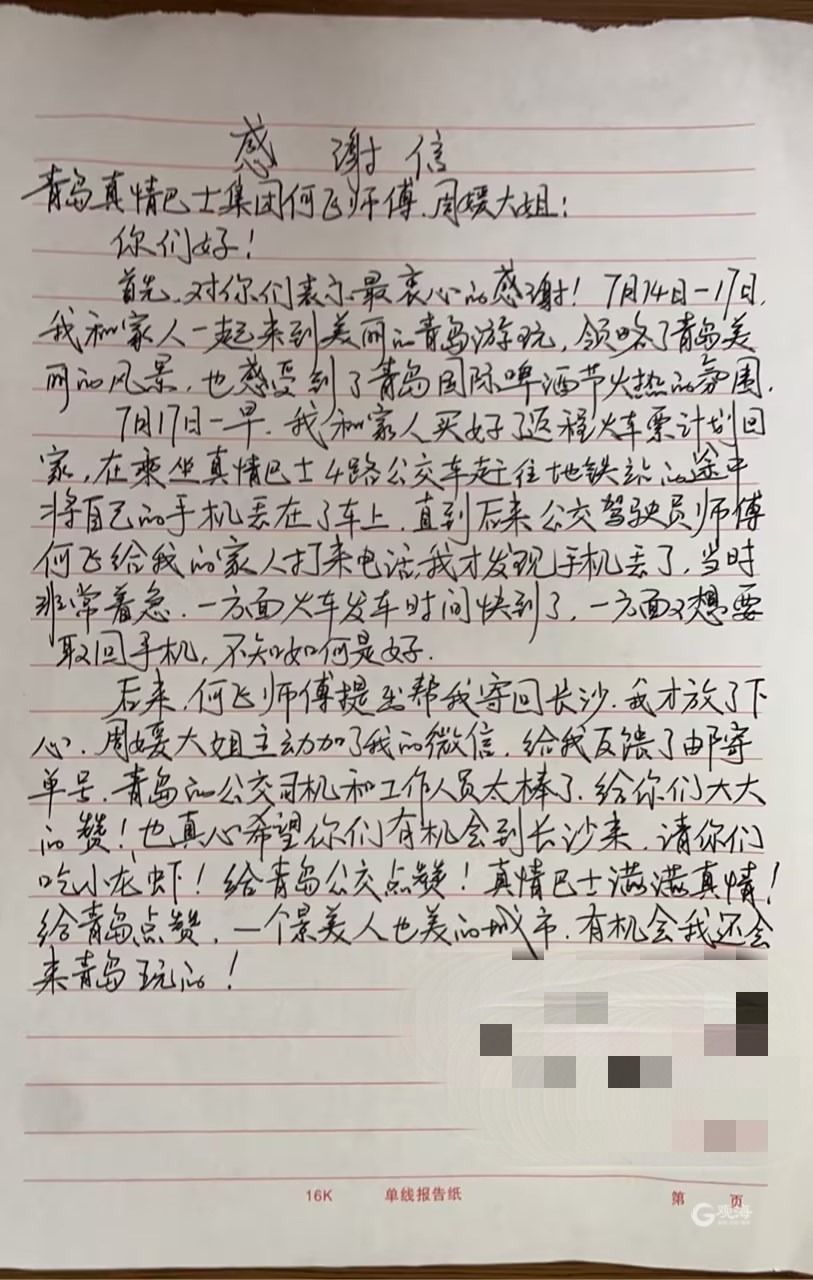 感谢信
青岛真情巴士集团何飞师傅、周媛大姐：
你们好！
首先，对你们表示最衷心的感谢！7月14日－17日，
我和家人一起来到美丽的青岛游玩，领略了青岛美
丽的风景，也感受到了青岛国际啤酒节火热的氛围。
7月17日一早，我和家人买好了返程火车票计划回
家，在乘坐真情巴士4路公交车赶往地铁站的途中
将自己的手机丢在了车上，直到后来公交驾驶员师傅
何飞给我的家人打来电话，我才发现手机丢了，当时
非常着急，一方面火车发车时间快到了，一方面又想要
取回手机，不知如何是好。
后来，何飞师傅提出帮我寄回长沙，我才放了下
心，周媛大姐主动加了我的微信，给我反馈了邮寄
单号，青岛的公交司机和工作人员太棒了，给你们大大
的赞！也真心希望你们有机会到长沙来，请你们
吃小龙虾！给青岛公交点赞！真情巴士满满真情！
给青岛点赞，一个景美人也美的城市，有机会我还会
来青岛玩的！
16K 单线报告纸 第 页
观海